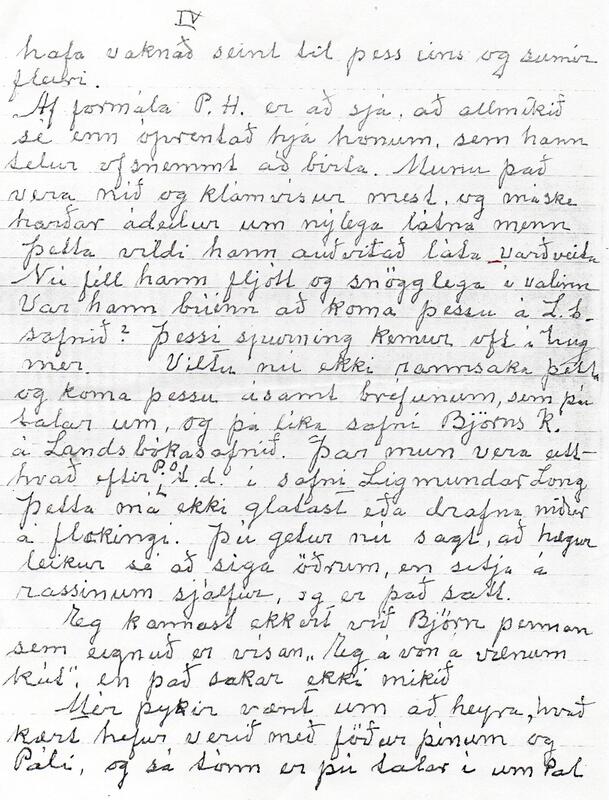 IV
hafa vaknað seint til þess eins og sumir
fleiri.
Af formála P. H. er að sjá, að allmikið
sé enn óprentað hjá honum, sem hann
telur ofsnemmt að birta. Munu það
vera níð og klámvísur mest, og máske
harðar ádeilur um nýlega látna menn
Þetta vildi hann auðvitað láta varðveita
Nú féll hann fljótt og snögglega í valinn
Var hann búinn að koma þessu á L.b.
safnið? Þessi spurning kemur oft í hug
mér. Viltu nú ekki rannsaka þetta
og koma þessu ásamt bréfunum, sem þú
talar um, og þá líka safni Björns K.
á Landsbókasafnið. Þar mun vera eitt-
hvað eftir P. Ó. t. d. í safni Sigmundar Long
Þetta má ekki glatast eða drafna niður
á flækingi. Þú getur nú sagt, að hægur
leikur sé að siga öðrum, en sitja á
rassinum sjálfur, og er það satt.
Eg kannast ekkert við Björn þennan
sem eignuð er vísan „Eg á von á vænum
kút", en það sakar ekki mikið
Mér þykir vænt um að heyra, hvað
kært hefur verið með föður þínum og
Páli, og sá tónn er þú talar í um Pál